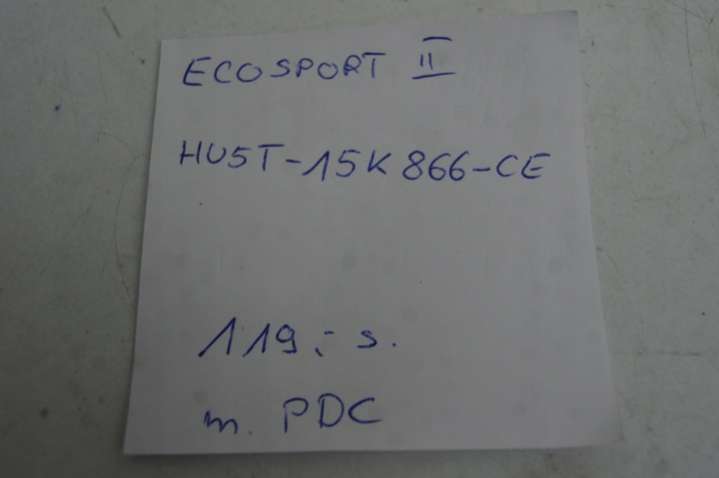 ECOSPORT II
HU5T-15K866-CE
119,- s.
m. PDC